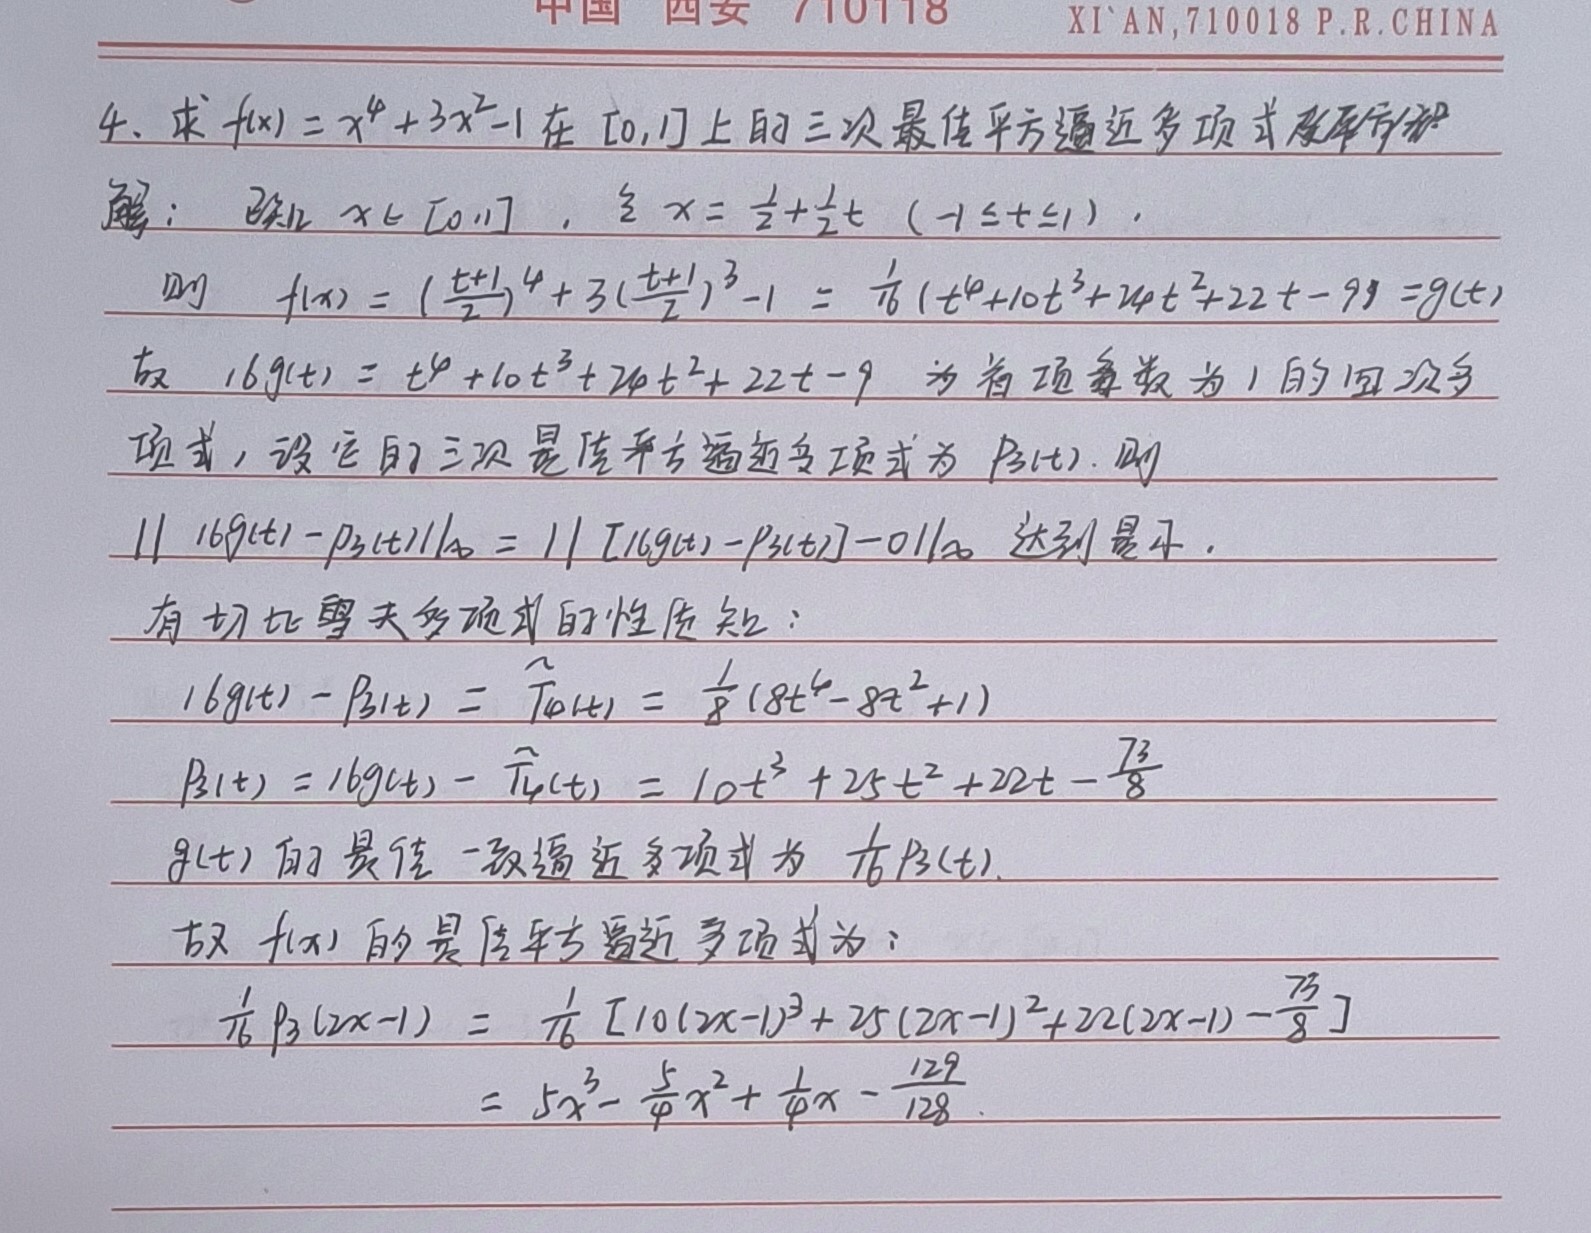 中国 西安 710118
XI`AN,710018 P.R.CHINA
4、求 f(x) = x⁴+3x²-1 在 [0,1] 上的三次最佳平方逼近多项式
解: x∈[0,1], 令 x = 1/2+1/2t (-1≤t≤1).
则 f(x) = (t+1/2)⁴+3(t+1/2)³-1 = 1/16(t⁴+10t³+24t²+22t-9) = g(t)
故 16g(t) = t⁴+10t³+24t²+22t-9 为首项系数为1的四次多
项式, 设它的三次最佳平方逼近多项式为 P₃(t). 则
|| 16g(t)-P₃(t)||∞ = || [16g(t)-P₃(t)]-0||∞ 达到最小.
有切比雪夫多项式的性质知:
16g(t)-P₃(t) = T̃₄(t) = 1/8(8t⁴-8t²+1)
P₃(t) = 16g(t)-T̃₄(t) = 10t³+25t²+22t-73/8
g(t) 的最佳一致逼近多项式为 1/16P₃(t).
故 f(x) 的最佳平方逼近多项式为:
1/16P₃(2x-1) = 1/16[10(2x-1)³+25(2x-1)²+22(2x-1)-73/8]
= 5x³-5/4x²+1/4x-129/128.